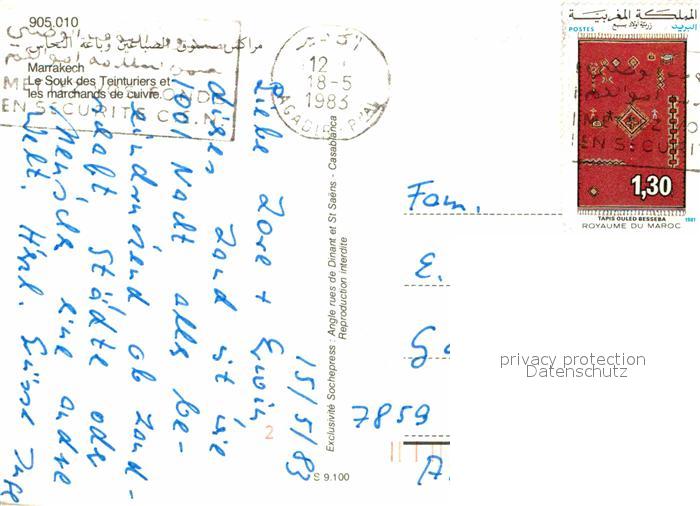 905.010
مراكش صندوق الصباغين وباعة النحاس
Marrakech
Le Souk des Teinturiers et
les marchands de cuivre.
EN SECURITE
12
18-5
1983
AGADIR
15/5/83
Liebe Lore + Erwin
dieses Land ist wie
1001 Nacht alles be-
eindruckend ob Land-
schaft, Städte oder
Mensch eine andre
Welt. Herzl. Grüsse
Exclusivité Sochepress : Angle rues de Dinant et St Saëns - Casablanca
Reproduction interdite
S 9.100
2
المملكة المغربية
البريد
POSTES
1,30
TAPIS OULED BESSEBA
1981
ROYAUME DU MAROC
Fam.
E.
7859
privacy protection
Datenschutz